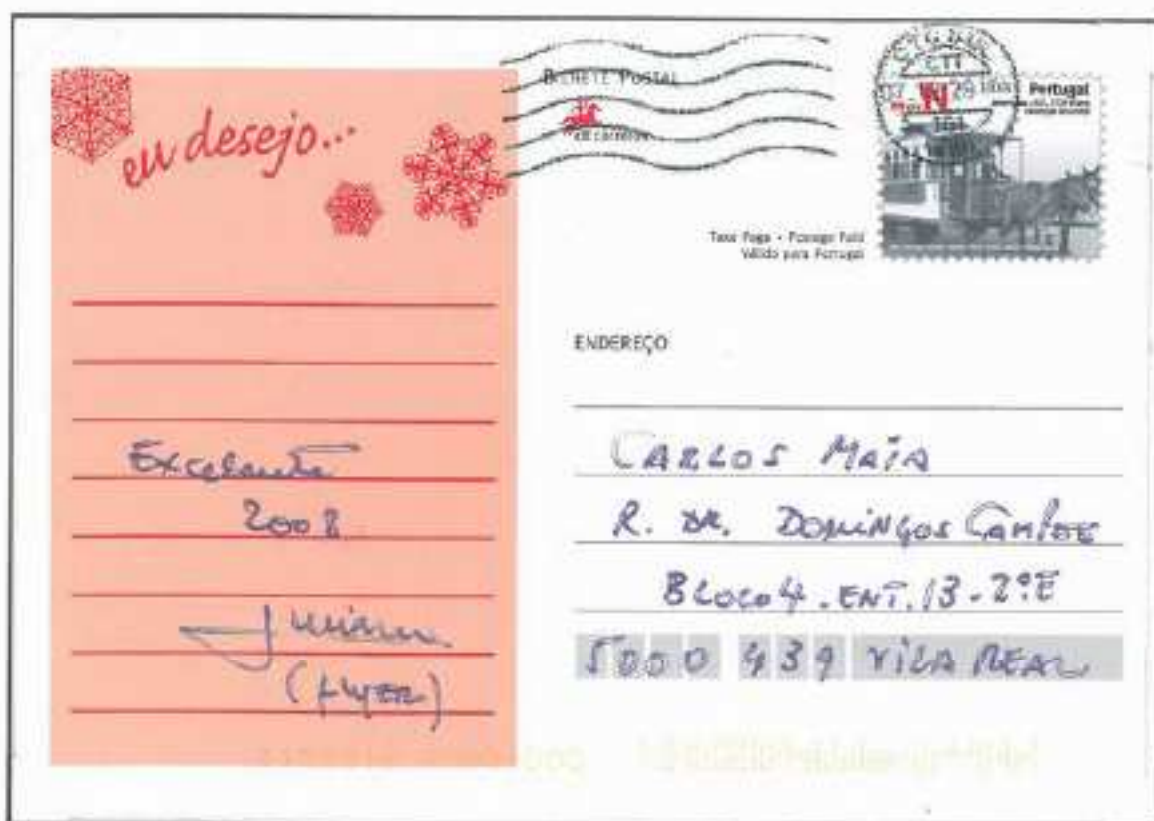 eu desejo...
Excelente
2008
(Flyer)
BILHETE POSTAL
correios
Portugal
Taxa Paga - Postage Paid
Válido para Portugal
ENDEREÇO
CARLOS MAIA
R. DR. DOMINGOS CAMPOS
BLOCO 4. ENT. 13 - 2º E
5000 439 VILA REAL